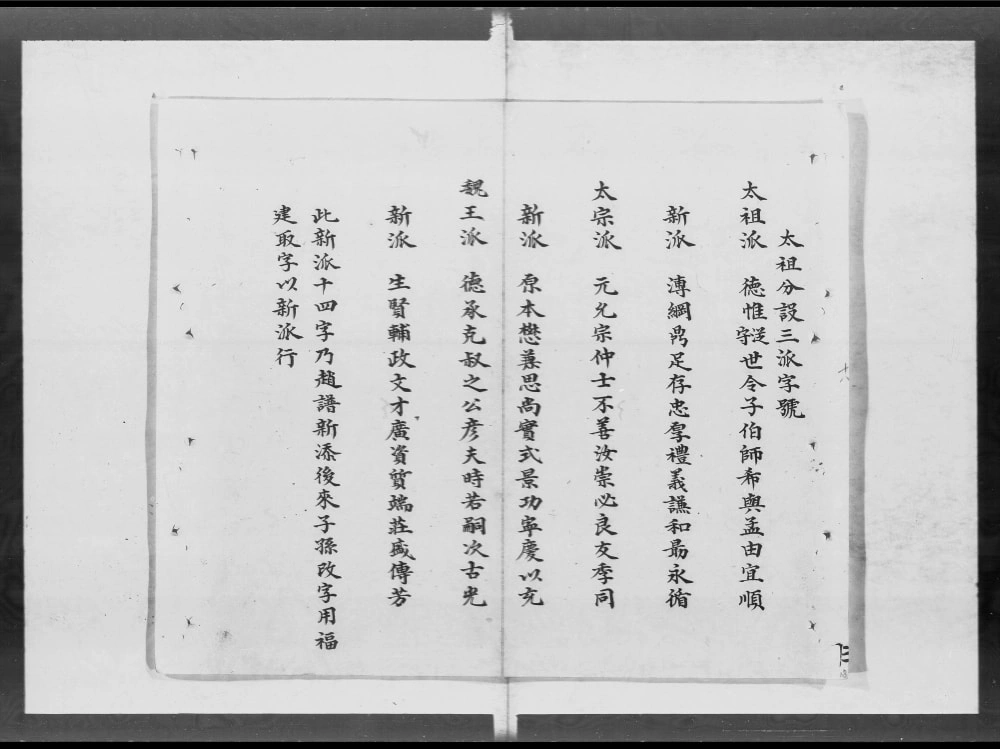 太祖分設三派字號
太祖派 德惟從守世令子伯師希與孟由宜順
新派 溥綱 足存忠厚禮義謙和勗永循
太宗派 元允宗仲士不善汝崇必良友季同
新派 原本懋兼思尚實式景功寧慶以充
魏王派 德承克叔之公彥夫時若嗣次古光
新派 生賢輔政文才廣資質端莊盛傳芳
此新派十四字乃趙譜新添後來子孫改字用福
建取字以新派行